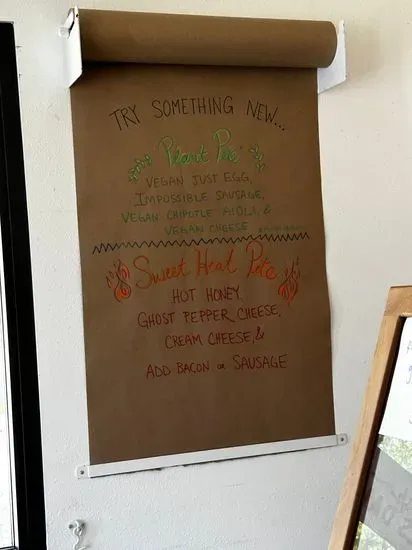 TRY SOMETHING NEW...
Plant Pete
VEGAN JUST EGG,
IMPOSSIBLE SAUSAGE,
VEGAN CHIPOTLE AIOLI, &
VEGAN CHEESE
Sweet Heat Pete
HOT HONEY,
GHOST PEPPER CHEESE,
CREAM CHEESE, &
ADD BACON or SAUSAGE